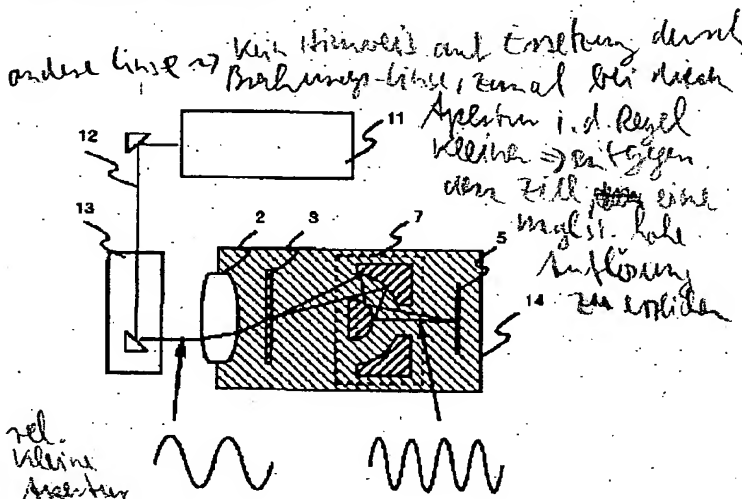 andere Linse ⇒ Kein Hinweis auf Ersetzung durch
Beugungs-Linse, zumal bei diesen
Apertur i.d. Regel
kleiner ⇒ entgegen
dem Ziel eine
möglst. hohe
Auflösung
zu erzielen
11
12
13
2
3
7
5
14
rel.
kleine
Apertur